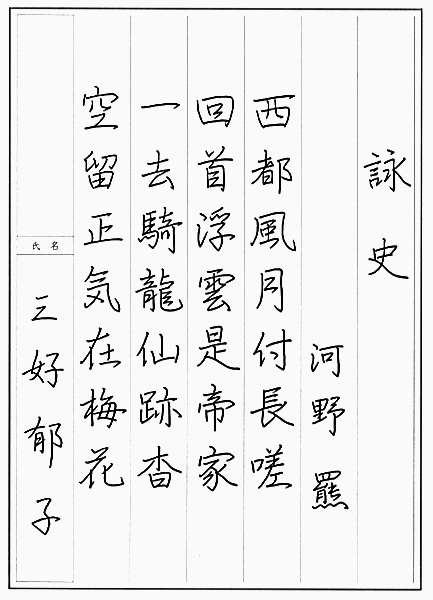 詠史
河野羆
西都風月付長嗟
回首浮雲是帝家
一去騎龍仙跡杳
空留正気在梅花
氏名
三好郁子